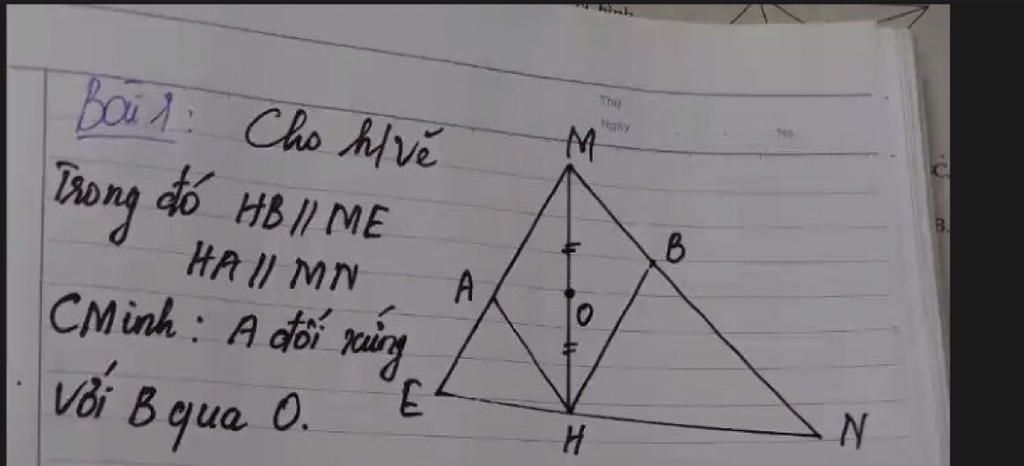 Bài 1: Cho h/vẽ
Trong đó HB // ME
HA // MN
CMinh: A đối xứng
với B qua O.
Thứ
Ngày
No
M
B
A
O
E
H
N
hình
C.
B.